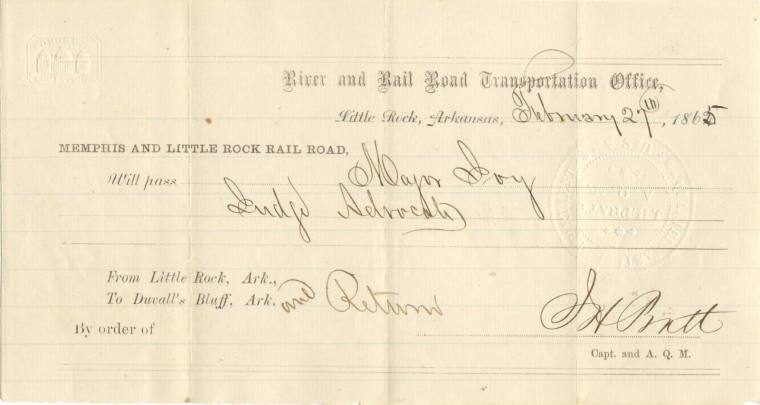 River and Rail Road Transportation Office,
Little Rock, Arkansas, February 27th, 1865
MEMPHIS AND LITTLE ROCK RAIL ROAD,
Will pass Major Joy
Judge Advocate
From Little Rock, Ark.,
To Duvall's Bluff, Ark. and Return
By order of J H Pratt
Capt. and A. Q. M.